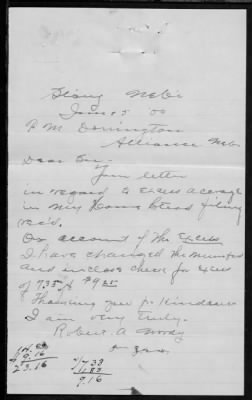 Neb
June 5 00
F. M. Dorrington
Alliance Neb
Dear Sir.
Your letter
in regard to Excess acreage
in my Home stead filing
rec'd.
On account of the Excess
I have changed the
and inclose check for Excess
of 7.33
Thanking you for kindness
I am very truly.
Robert A Moody
9.16
23.16
7.33
9.16